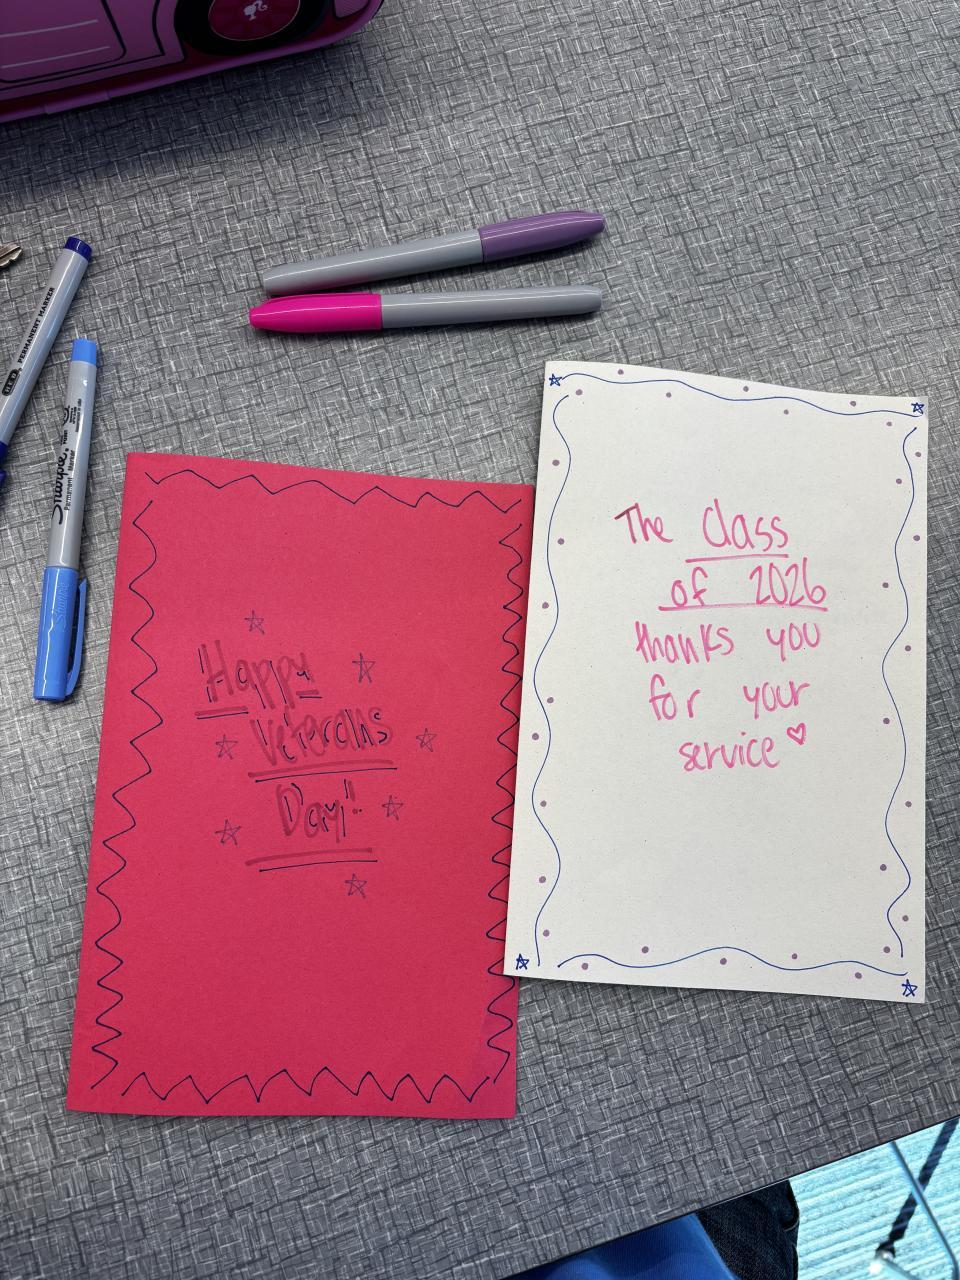 U.S. PERMANENT MARKER
Sharpie
Permanent Marker
Happy
Veterans
Day!
The Class
of 2026
thanks you
for your
service